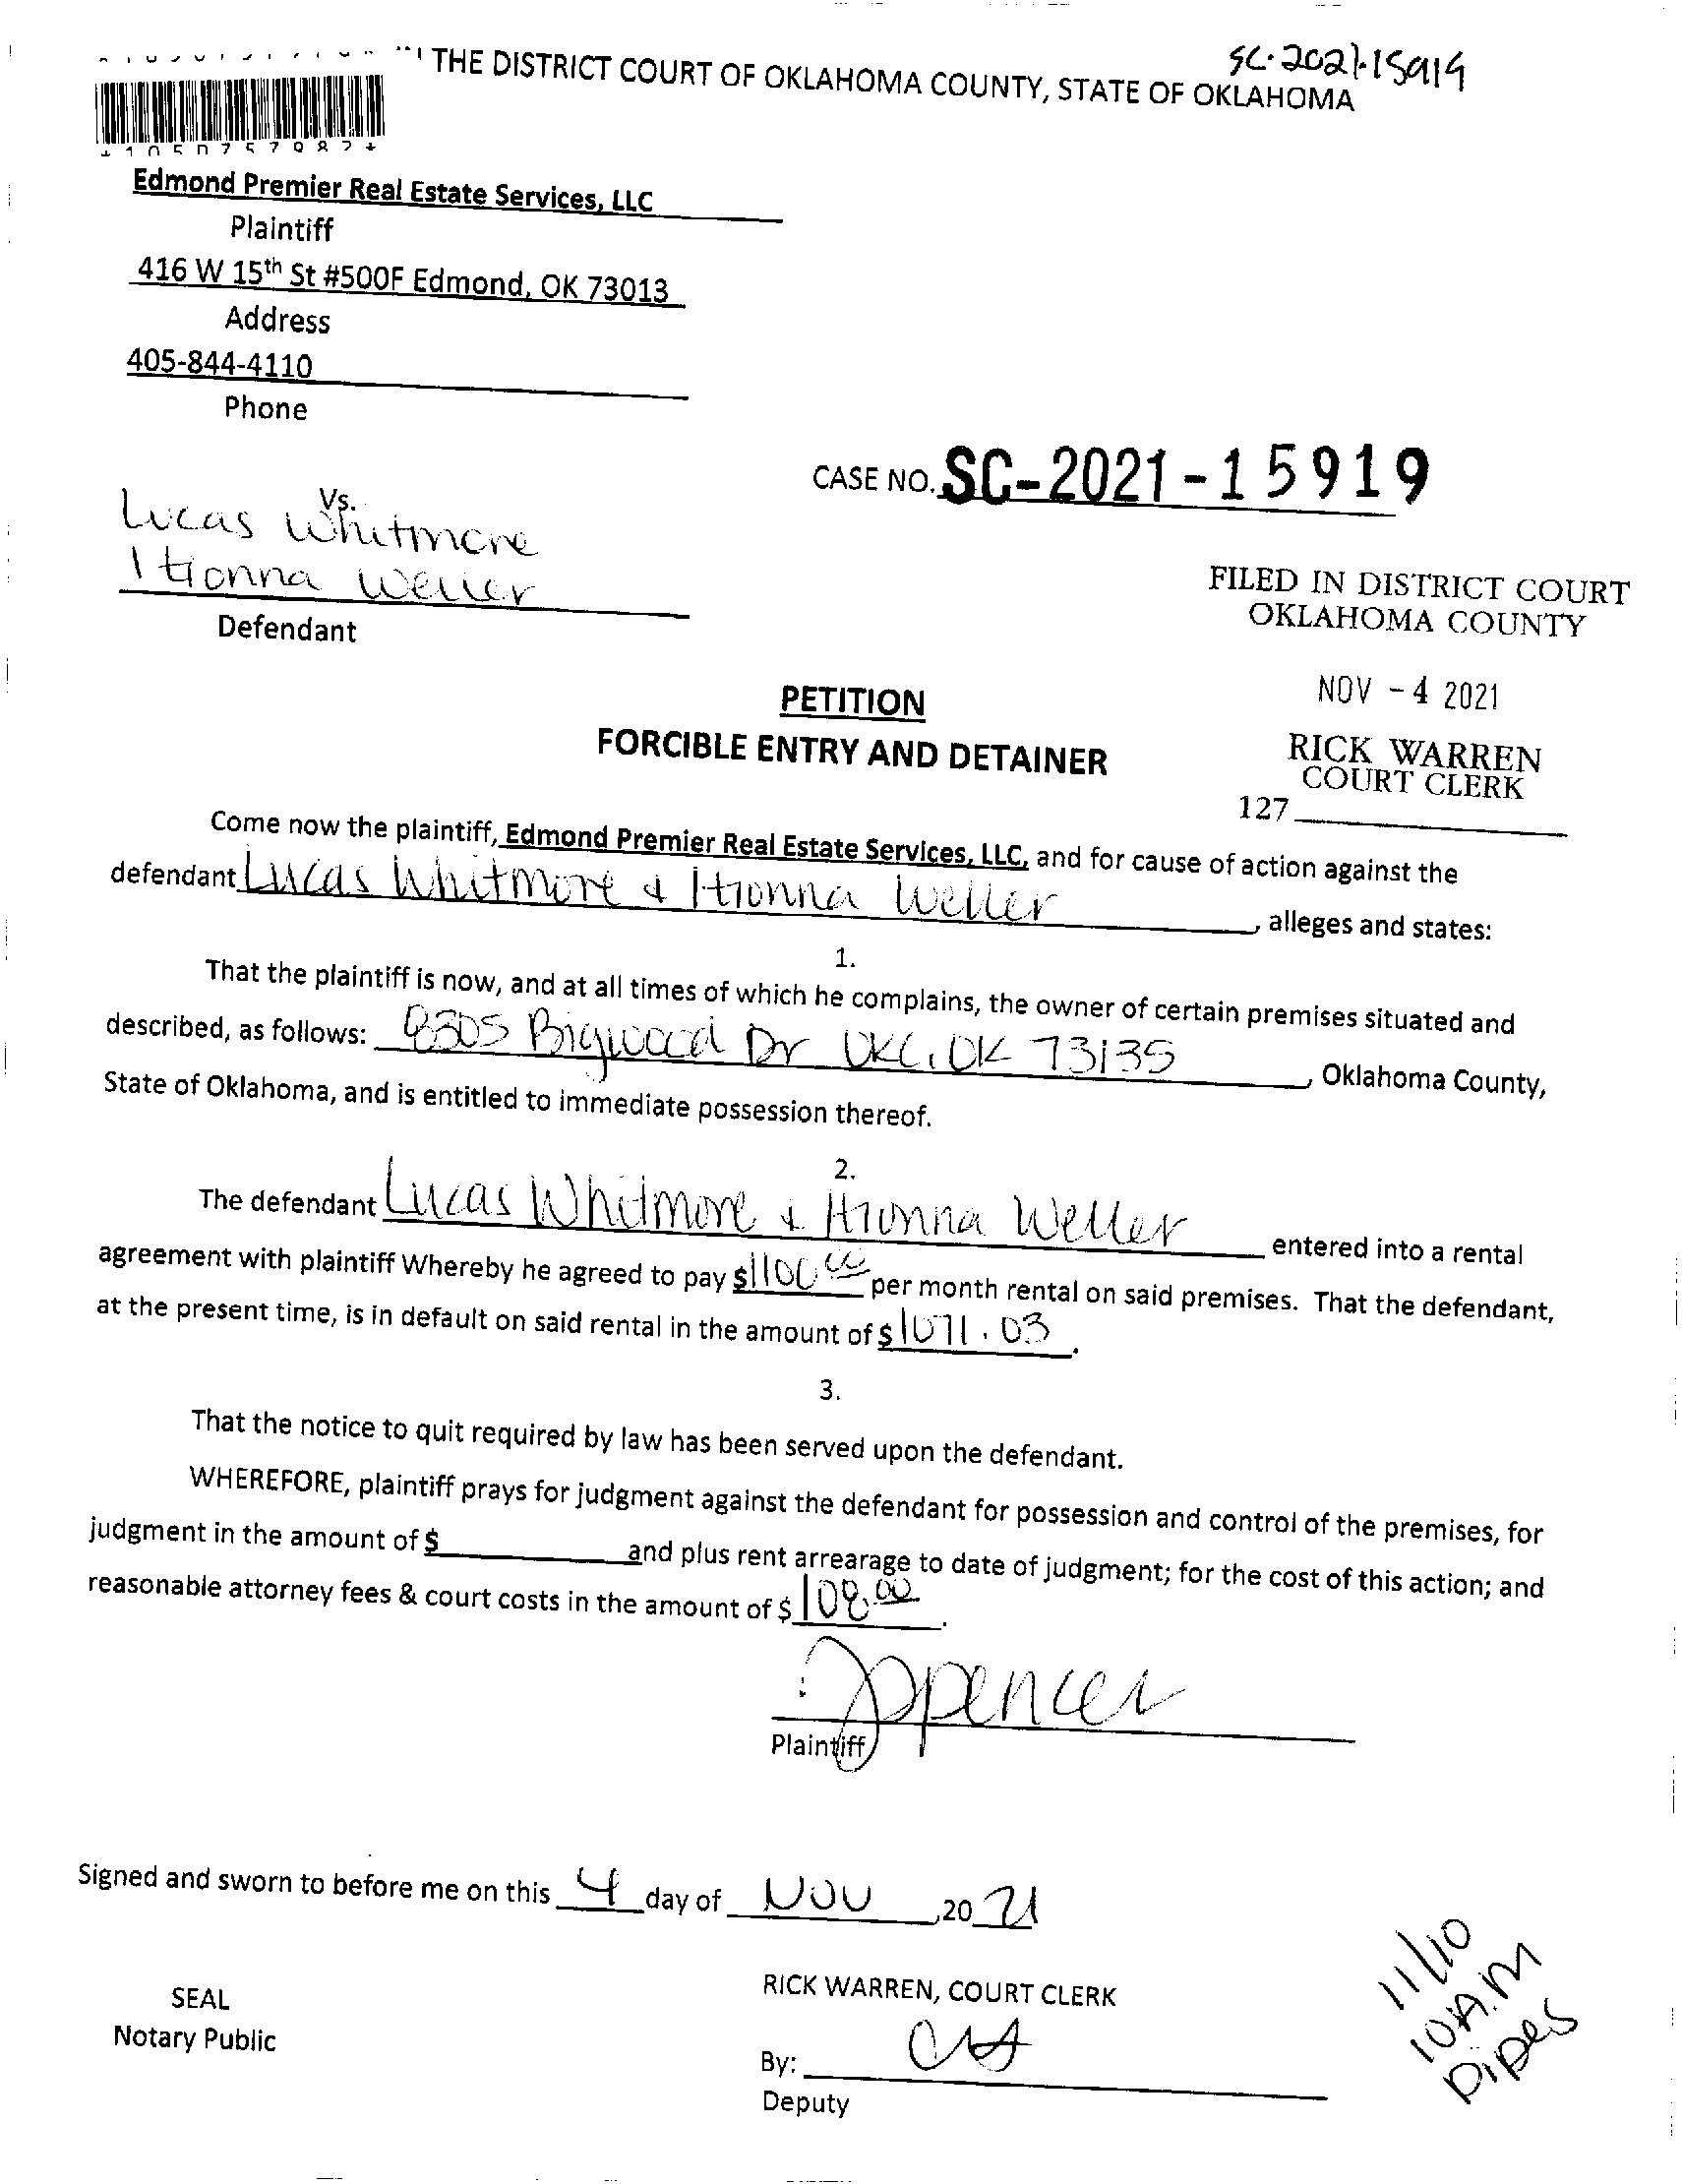 SC-2021-15919
THE DISTRICT COURT OF OKLAHOMA COUNTY, STATE OF OKLAHOMA
Edmond Premier Real Estate Services, LLC
Plaintiff
416 W 15th St #500F Edmond, OK 73013
Address
405-844-4110
Phone
CASE NO. SC-2021-15919
Vs.
Lucas Whitmore
Itionna Weller
Defendant
FILED IN DISTRICT COURT
OKLAHOMA COUNTY
NOV -4 2021
RICK WARREN
COURT CLERK
127
PETITION
FORCIBLE ENTRY AND DETAINER
Come now the plaintiff, Edmond Premier Real Estate Services, LLC, and for cause of action against the
defendant Lucas Whitmore & Itionna Weller, alleges and states:
1.
That the plaintiff is now, and at all times of which he complains, the owner of certain premises situated and
described, as follows: 8305 Bigwood Dr OKC, OK 73135, Oklahoma County,
State of Oklahoma, and is entitled to immediate possession thereof.
2.
The defendant Lucas Whitmore & Itionna Weller entered into a rental
agreement with plaintiff Whereby he agreed to pay $1100.00 per month rental on said premises. That the defendant,
at the present time, is in default on said rental in the amount of $1071.03.
3.
That the notice to quit required by law has been served upon the defendant.
WHEREFORE, plaintiff prays for judgment against the defendant for possession and control of the premises, for
judgment in the amount of $ and plus rent arrearage to date of judgment; for the cost of this action; and
reasonable attorney fees & court costs in the amount of $108.00.
JSpencer
Plaintiff
Signed and sworn to before me on this 4 day of NOV, 2021
SEAL
Notary Public
RICK WARREN, COURT CLERK
By:
Deputy
11/10
10 A.M
Pipes